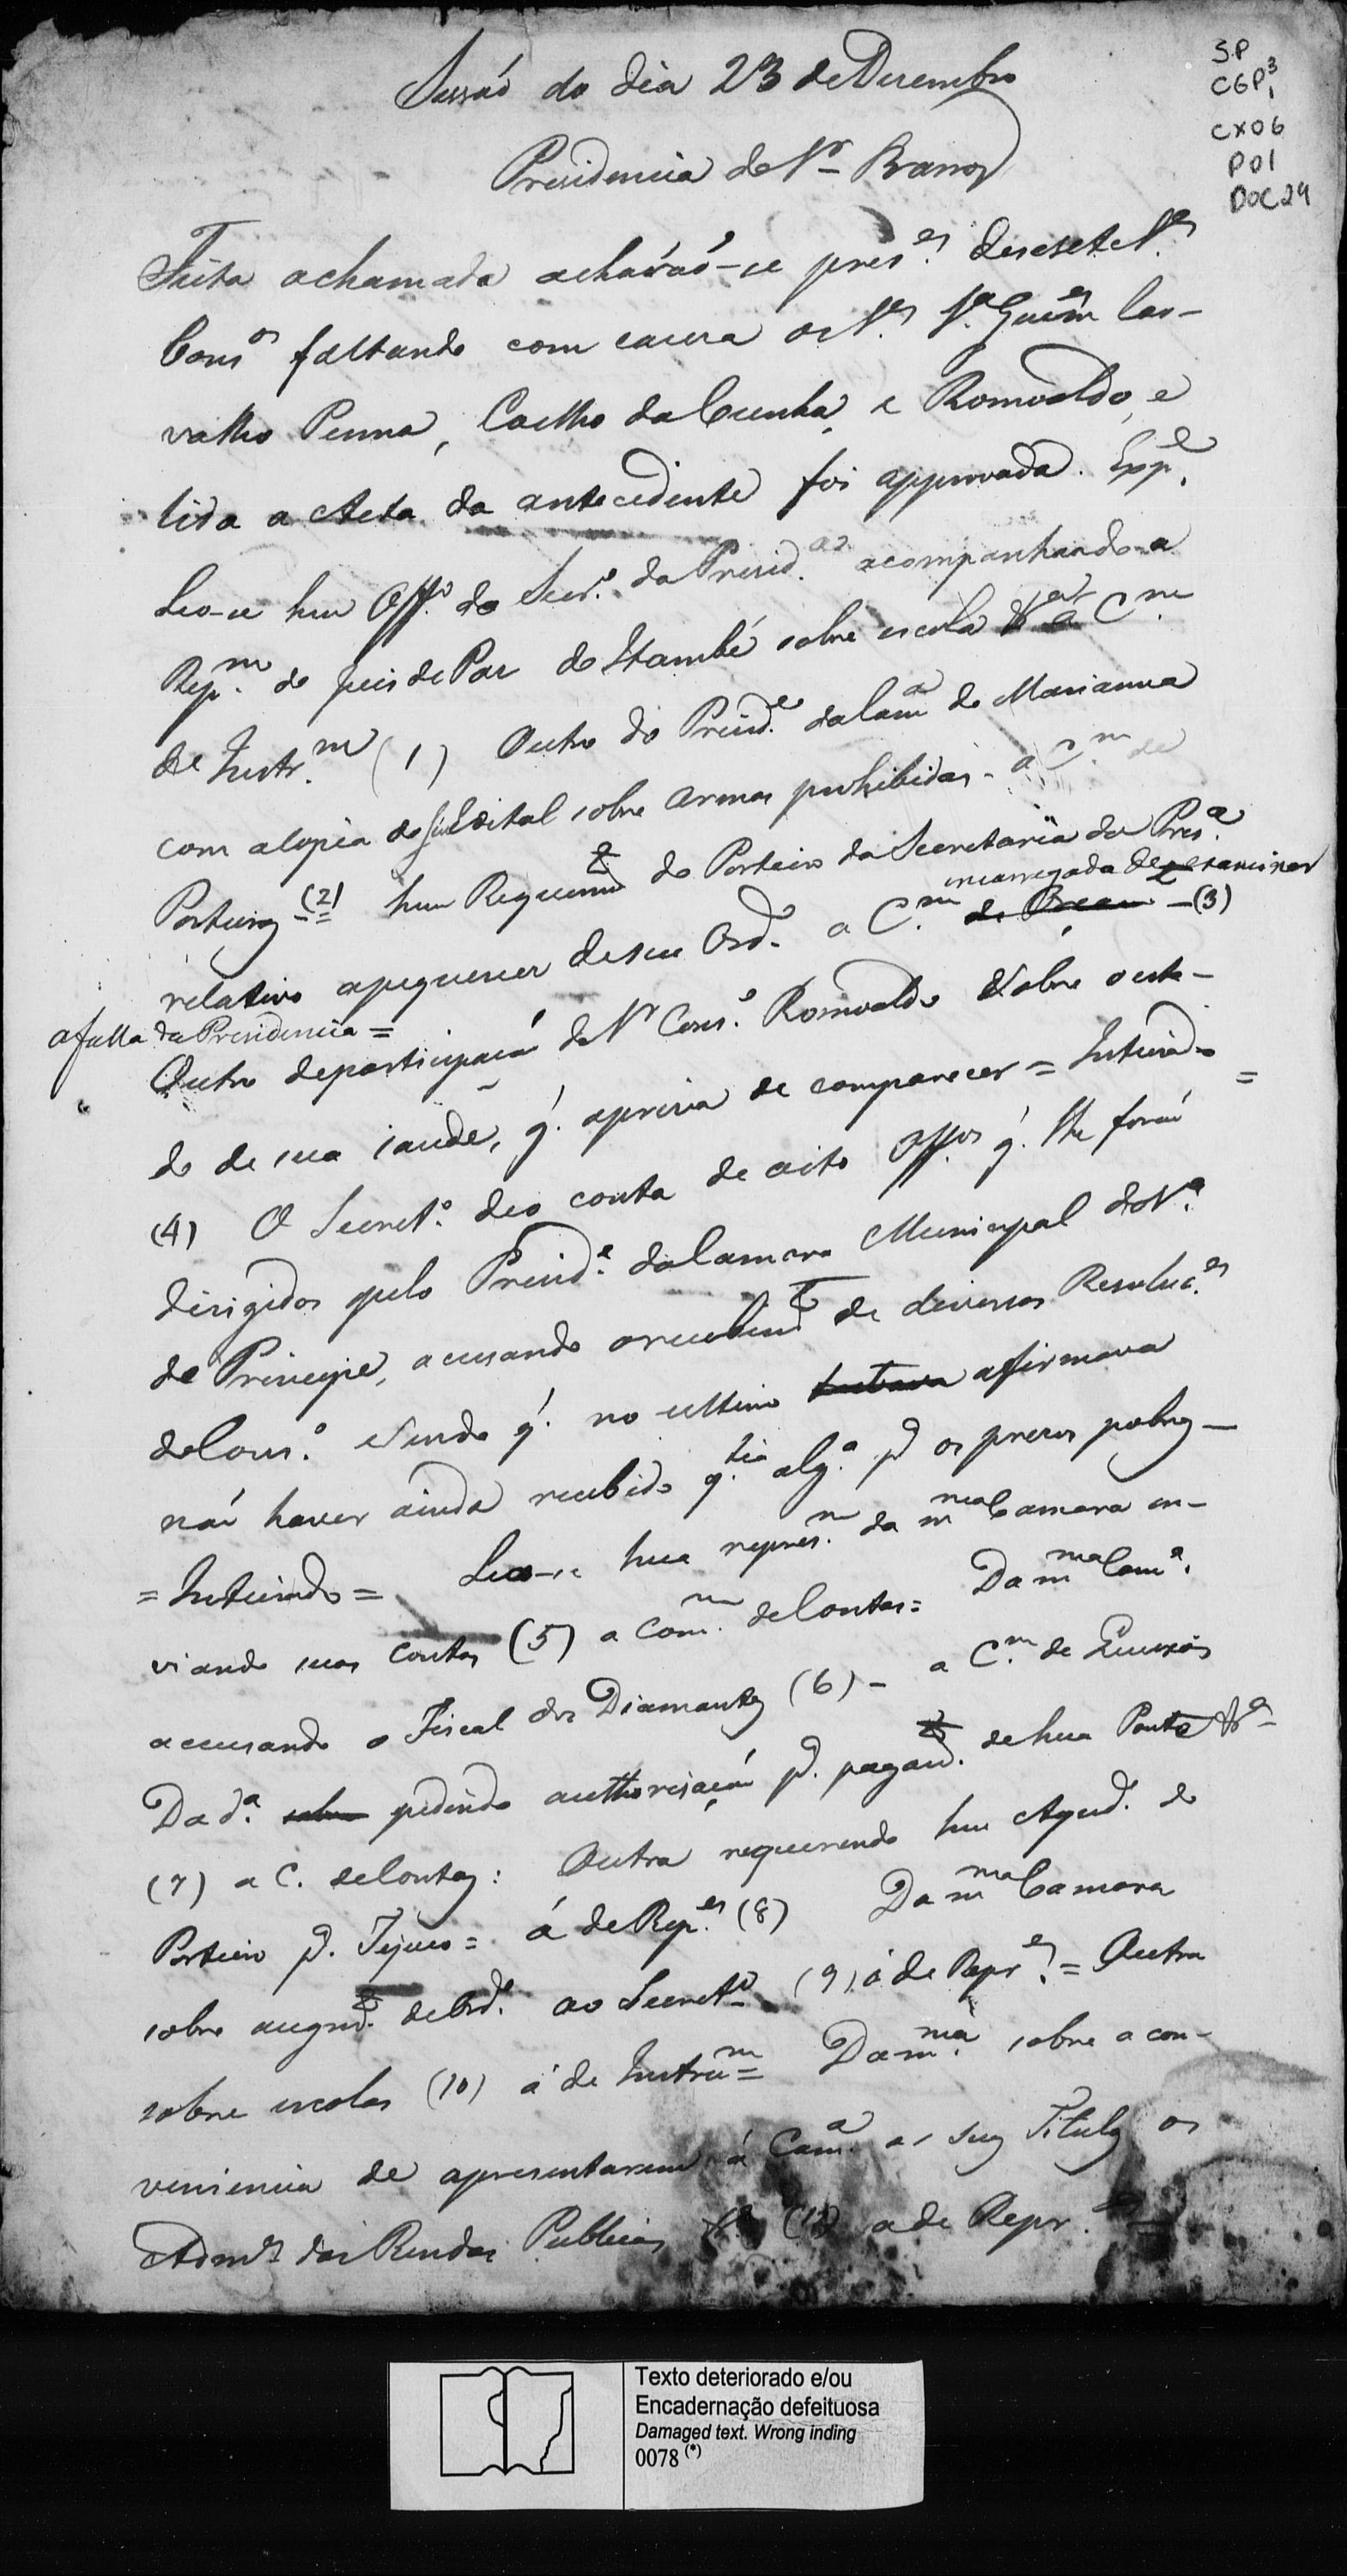 S.P
CGP³1
CX06
P01
DOC29
Sessaõ do dia 23 de Dezembro
Presidencia do Sr. Barros
Feita a chamada acharaõ-se pres.es desesete Srs.
Cons.os faltando com causa os Srs.
valho Penna, Coelho da Cunha, e Romoaldo, e
lida a Acta da antecedente foi approvada. Exp.e
Leo-se hum Off.o do Secr.o da Presid.a acompanhando a
Rep.m do Juis de Paz do Itambé sobre escola a C.m
de Instr.m (1) Outro do Presid.e da Cam.a de Marianna
com a copia do seu Edital sobre armas prohibidas - a C.m de
Posturas (2) hum Requerim.to do Porteiro da Secretaria da Pres.a
encarregada de examinar
relativo a pequenez de seu Ord.o a C.m (3)
a falla da Presidencia =
Outro de participaçaõ do Sr Cons.o Romoaldo sobre o esta-
do de sua saude, q. a priva de comparecer = Inteirado =
(4) O Secret.o deo conta de oito Off.os q. lhe foraõ
dirigidos pelo Presid.e da Camara Municipal da V.a
do Principe, accusando o recebim.to de diversas Resoluç.es
do Cons.o sendo q. no ultimo afirmava
naõ haver ainda recebido q.tia alg.a p.a os prezos pobres -
= Inteirado = Leo-se hua repres.m da m.ma Camara en-
viando suas Contas (5) a Com.m de Contas = Da m.ma Cam.a
accusando o Fiscal dos Diamantes (6) - a C.m de
Da d.a pedindo authorisaçaõ p.a pagam.to de hua Ponte &.a
(7) a C. de Contas: Outra requerendo hum Ajud.e do
Porteiro p.a Tejuco = á de Rep.es (8) Da m.ma Camara
sobre augm.to de Ord.o ao Secret.o (9) á de Repr.es = Outra
sobre escolas (10) á de Instru.m = Da m.ma sobre a con-
veniencia de apresentarem á Cam.a os seus Titulos os
Adm.es das Rendas Publicas a de Repr.es
Texto deteriorado e/ou
Encadernação defeituosa
Damaged text. Wrong inding
0078 (*)